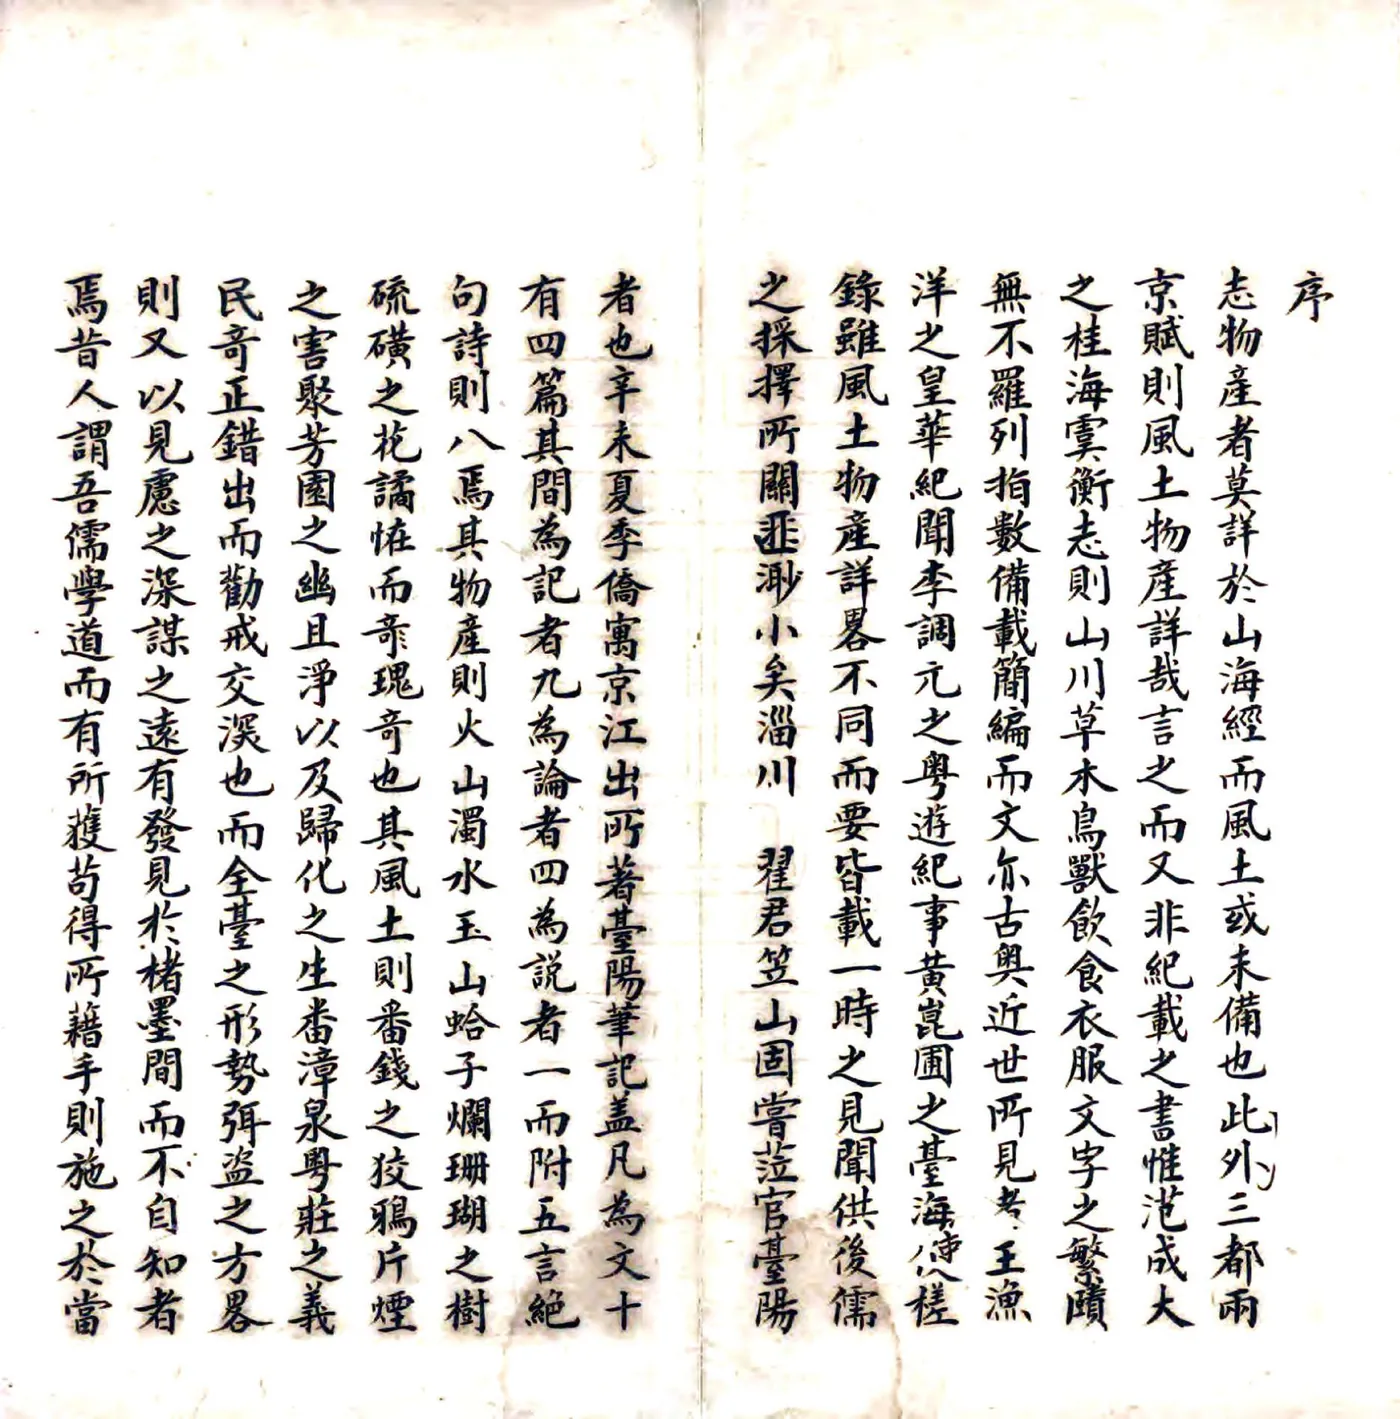 序
志物產者莫詳於山海經而風土或未備也此外三都兩
京賦則風土物產詳哉言之而又非紀載之書惟范成大
之桂海虞衡志則山川草木鳥獸飲食衣服文字之繁賾
無不羅列指數備載簡編而文亦古奧近世所見者王漁
洋之皇華紀聞李調元之粵遊紀事黃崑圃之臺海使槎
錄雖風土物產詳畧不同而要皆載一時之見聞供後儒
之採擇所關匪渺小矣淄川 翟君笠山固嘗蒞官臺陽
者也辛未夏季僑寓京江出所著臺陽筆記盖凡為文十
有四篇其間為記者九為論者四為説者一而附五言絕
句詩則八焉其物產則火山濁水玉山蛤子爛珊瑚之樹
硫磺之花譎恠而竒瑰竒也其風土則番錢之狡鴉片煙
之害聚芳園之幽且淨以及歸化之生番漳泉粵莊之義
民竒正錯出而勸戒交深也而全臺之形勢弭盜之方畧
則又以見慮之深謀之遠有發見於楮墨間而不自知者
焉昔人謂吾儒學道而有所獲苟得所藉手則施之於當